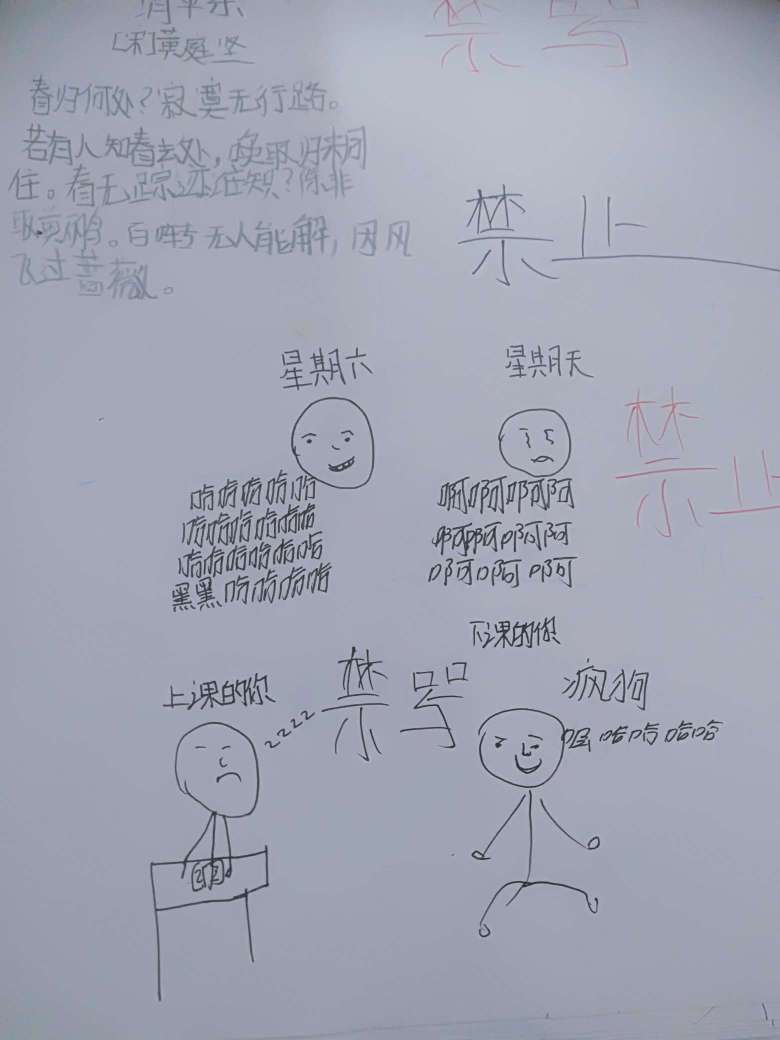 清平乐
[宋]黄庭坚
春归何处?寂寞无行路。
若有人知春去处,唤取归来同
住。春无踪迹谁知?除非
问黄鹂。百啭无人能解,因风
飞过蔷薇。
禁号
禁止
星期六
星期天
禁止
哈哈哈哈哈
哈哈哈哈哈哈
哈哈哈哈哈哈
黑黑哈哈哈哈
啊啊啊啊
啊啊啊啊
啊啊啊
上课的你
zzzz
禁号
下课的你
疯狗
哈哈哈哈